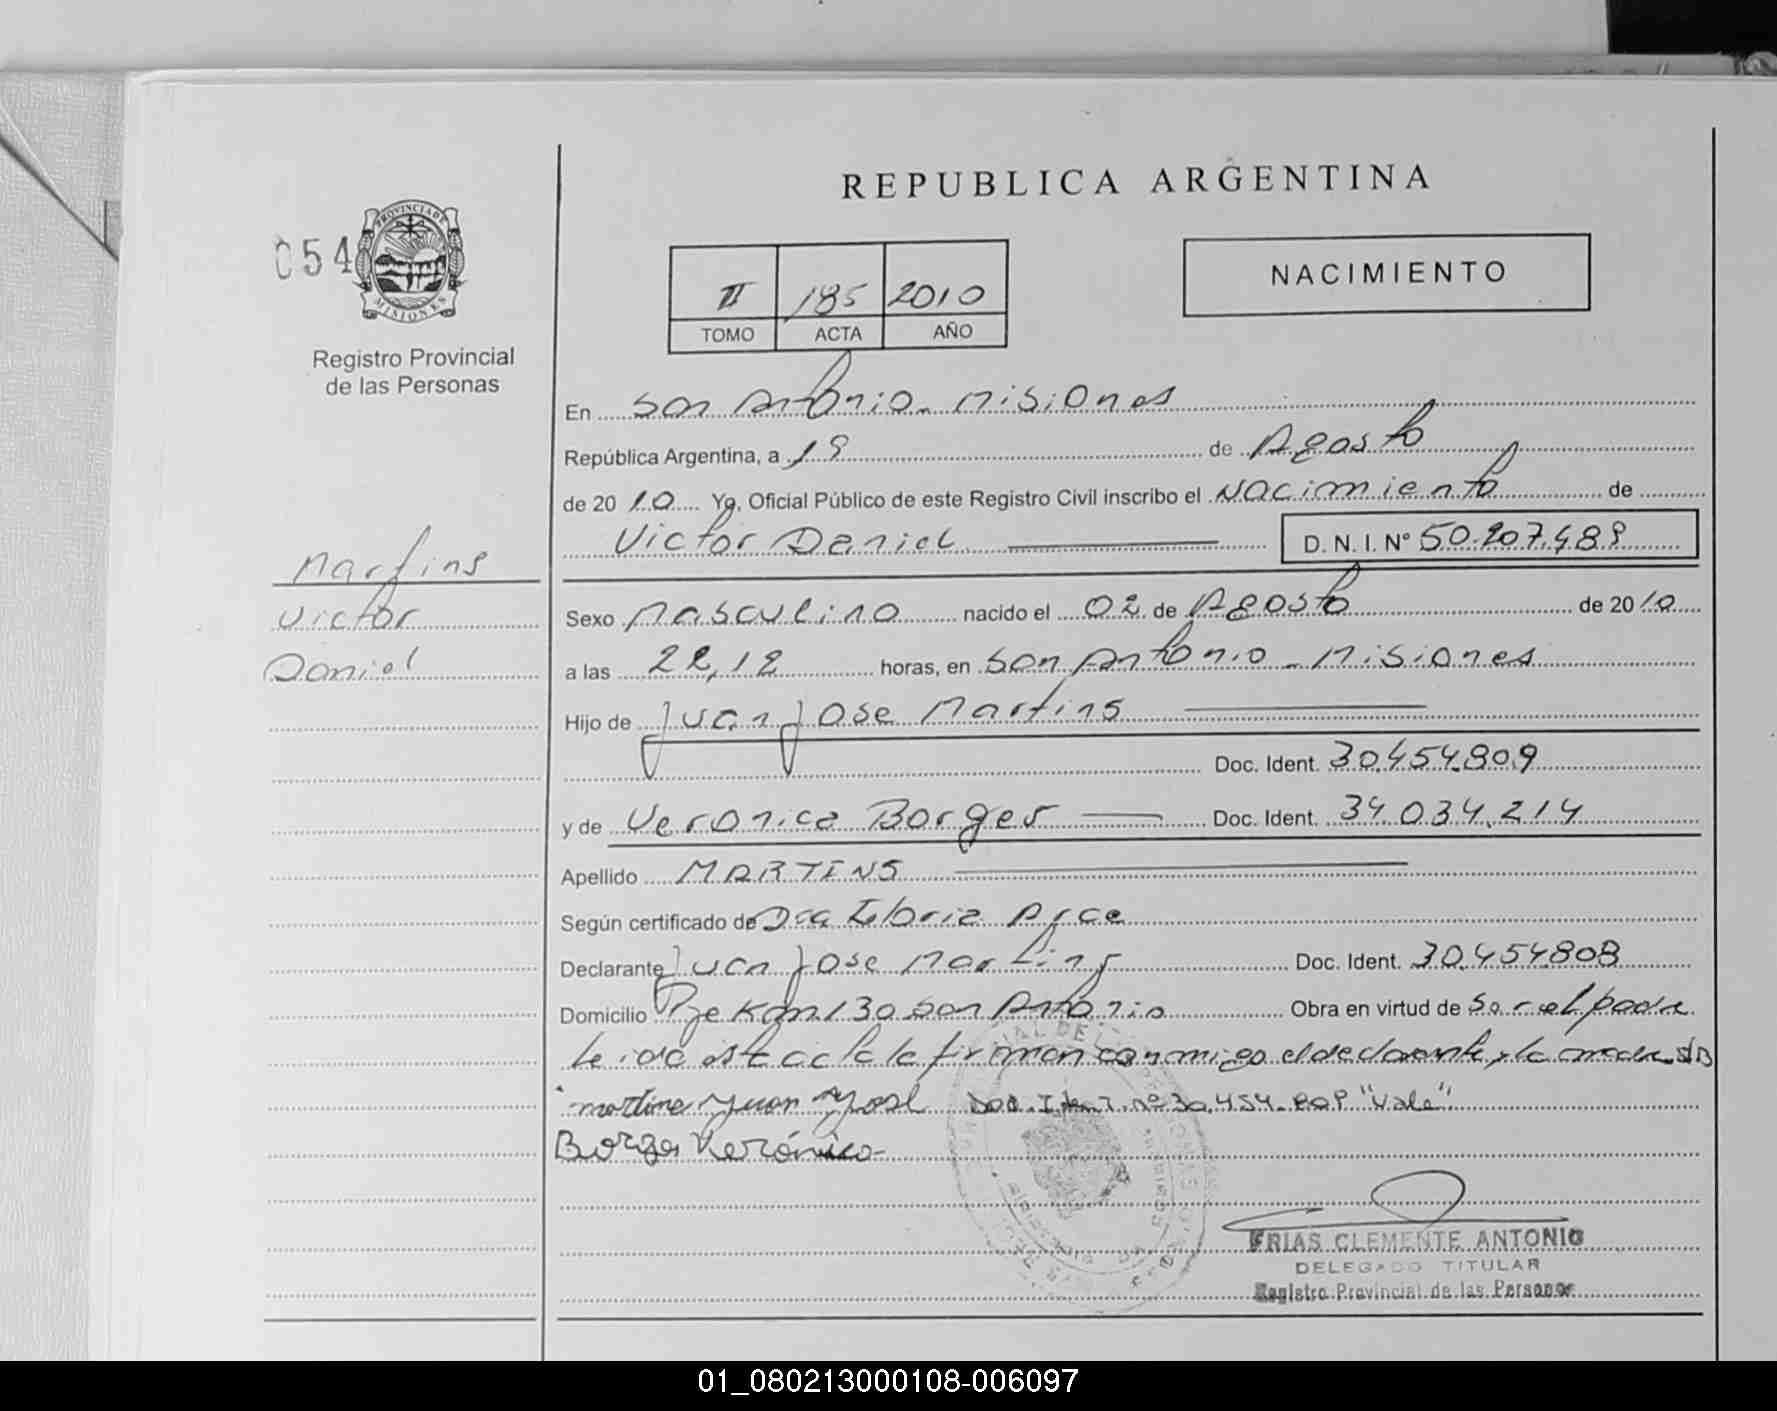 REPUBLICA ARGENTINA
054
PROVINCIA DE
MISIONES
Registro Provincial
de las Personas
II 185 2010
TOMO ACTA AÑO
NACIMIENTO
En San Antonio - Misiones
República Argentina, a 19 de Agosto
de 20 10 Yo, Oficial Público de este Registro Civil inscribo el Nacimiento de
Victor Daniel D. N. I. Nº 50.207.489
Martins
Victor
Daniel
Sexo Masculino nacido el 02 de Agosto de 20 10
a las 22,12 horas, en San Antonio - Misiones
Hijo de Juan Jose Martins
Doc. Ident. 30.454.809
y de Veronica Borges Doc. Ident. 34.034.214
Apellido MARTINS
Según certificado de Dra Arce
Declarante Juan Jose Martins Doc. Ident. 30.454.808
Domicilio Pje Km 130 San Antonio Obra en virtud de ser el padre
Leida esta acta la firman conmigo el declarante y la madre
Juan Doc. Ident. nº 30.454.809 "Vale"
Verónica
FRIAS CLEMENTE ANTONIO
DELEGADO TITULAR
Registro Provincial de las Personas
01_080213000108-006097